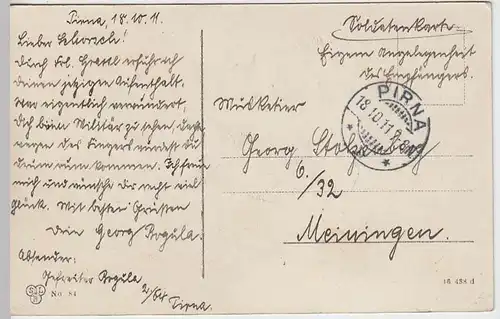 Pirna, 18.10.11.
Lieber Schorsch!
Durch Frl. Gretel erfuhr ich
deinen jetzigen Aufenthalt.
War eigentlich verwundert,
Dich beim Militär zu sehen, dachte
wegen des Fingers würdest du
drum rum kommen. Ich freue
mich und wünsche dir recht viel
glück. Mit besten Grüssen
Dein Georg Rogula.
Absender:
Gefreiter Rogula
2/64 Pirna.
No. 84
Soldatenkarte
Eigene Angelegenheit
des Empfängers.
PIRNA
18.10.11
Musketier
Georg Stolzenberg
6./32
Meiningen.
16 458 d